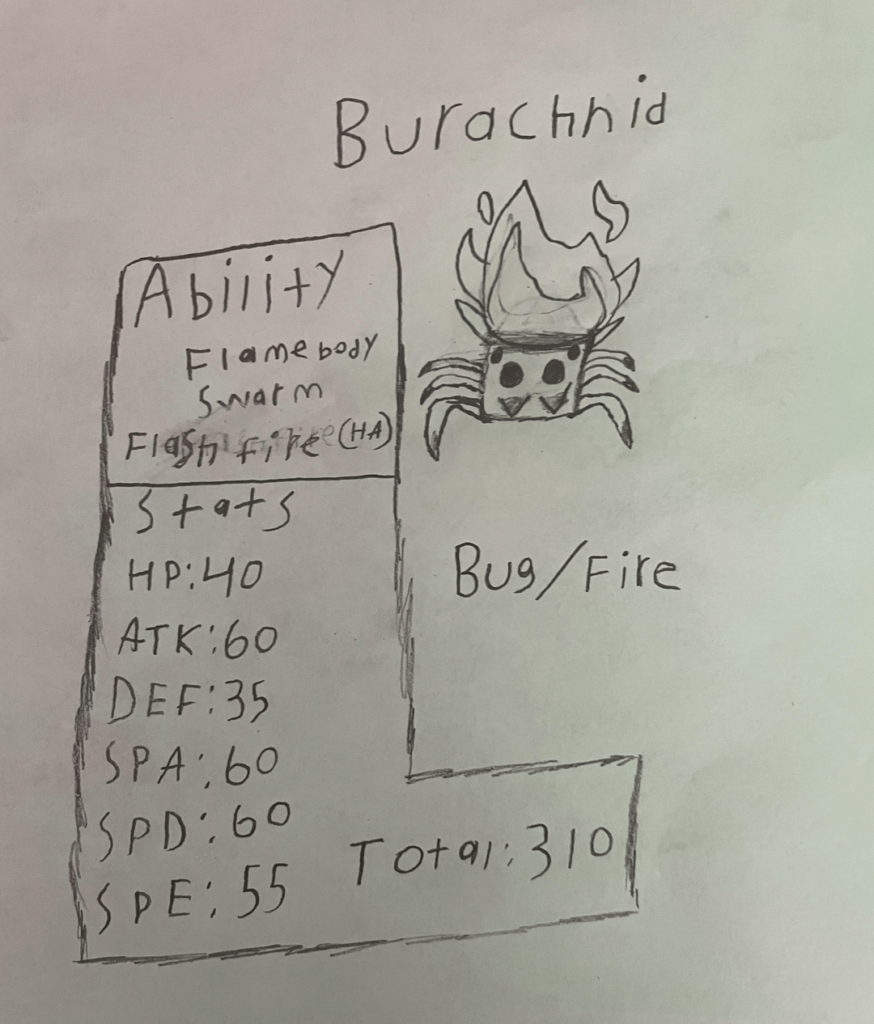 Burachnid
Ability
Flamebody
Swarm
Flash Fire (HA)
Stats
HP:40
ATK:60
DEF:35
SPA:60
SPD:60
SPE:55
Total:310
Bug/Fire